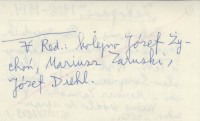 7 Red.: kolejno Józef Ży-
choń, Mariusz Zaruski,
Józef Diehl.